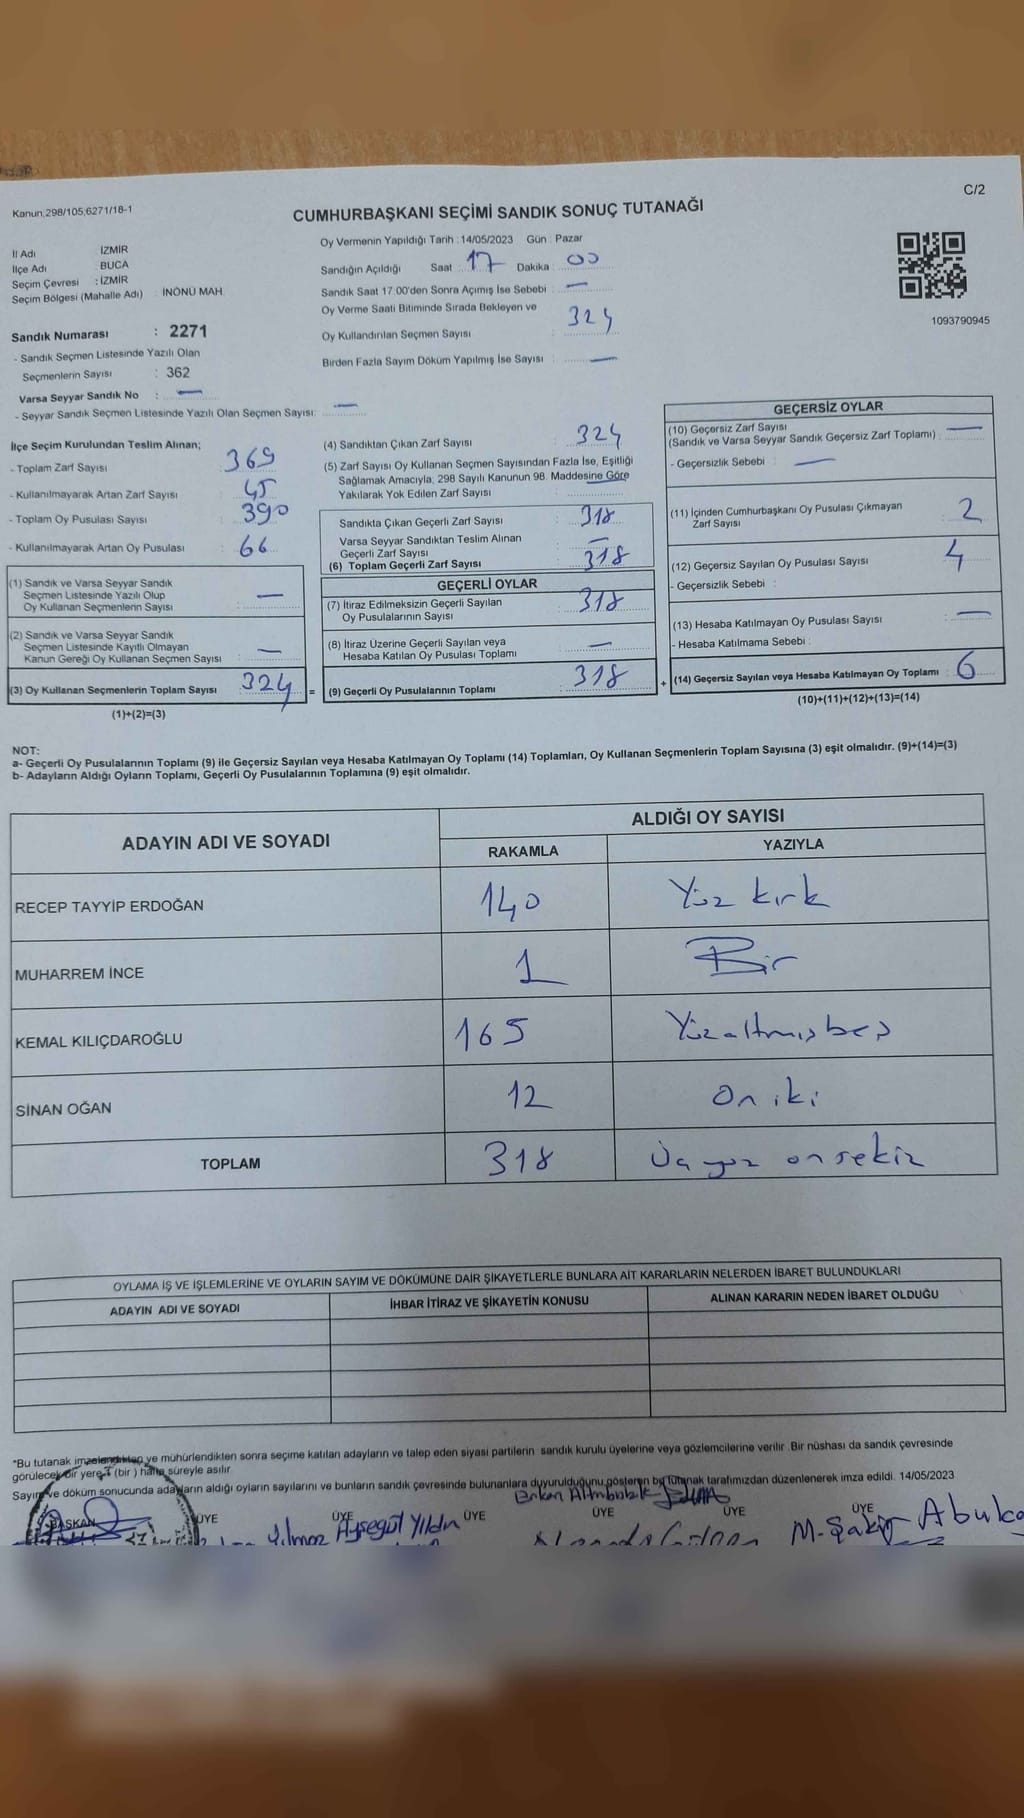 C/2
Kanun,298/105,6271/18-1
CUMHURBAŞKANI SEÇİMİ SANDIK SONUÇ TUTANAĞI
İl Adı İZMİR
İlçe Adı BUCA
Seçim Çevresi : İZMİR
Seçim Bölgesi (Mahalle Adı) : İNÖNÜ MAH.
Sandık Numarası : 2271
- Sandık Seçmen Listesinde Yazılı Olan
Seçmenlerin Sayısı : 362
Varsa Seyyar Sandık No : —
- Seyyar Sandık Seçmen Listesinde Yazılı Olan Seçmen Sayısı: —
Oy Vermenin Yapıldığı Tarih : 14/05/2023 Gün : Pazar
Sandığın Açıldığı Saat : 17 Dakika : 00
Sandık Saat 17.00'den Sonra Açımış İse Sebebi : —
Oy Verme Saati Bitiminde Sırada Bekleyen ve
Oy Kullandırılan Seçmen Sayısı : 324
Birden Fazla Sayım Döküm Yapılmış İse Sayısı : —
1093790945
İlçe Seçim Kurulundan Teslim Alınan;
- Toplam Zarf Sayısı : 369
- Kullanılmayarak Artan Zarf Sayısı : 45
- Toplam Oy Pusulası Sayısı : 390
- Kullanılmayarak Artan Oy Pusulası : 66
(1) Sandık ve Varsa Seyyar Sandık
Seçmen Listesinde Yazılı Olup
Oy Kullanan Seçmenlerin Sayısı : —
(2) Sandık ve Varsa Seyyar Sandık
Seçmen Listesinde Kayıtlı Olmayan
Kanun Gereği Oy Kullanan Seçmen Sayısı : —
(3) Oy Kullanan Seçmenlerin Toplam Sayısı : 324 =
(1)+(2)=(3)
(4) Sandıktan Çıkan Zarf Sayısı : 324
(5) Zarf Sayısı Oy Kullanan Seçmen Sayısından Fazla İse, Eşitliği
Sağlamak Amacıyla, 298 Sayılı Kanunun 98. Maddesine Göre
Yakılarak Yok Edilen Zarf Sayısı :
Sandıkta Çıkan Geçerli Zarf Sayısı : 318
Varsa Seyyar Sandıktan Teslim Alınan
Geçerli Zarf Sayısı : —
(6) Toplam Geçerli Zarf Sayısı : 318
GEÇERLİ OYLAR
(7) İtiraz Edilmeksizin Geçerli Sayılan
Oy Pusulalarının Sayısı : 318
(8) İtiraz Üzerine Geçerli Sayılan veya
Hesaba Katılan Oy Pusulası Toplamı : —
(9) Geçerli Oy Pusulalarının Toplamı : 318 +
GEÇERSİZ OYLAR
(10) Geçersiz Zarf Sayısı
(Sandık ve Varsa Seyyar Sandık Geçersiz Zarf Toplamı) : —
- Geçersizlik Sebebi : —
(11) İçinden Cumhurbaşkanı Oy Pusulası Çıkmayan
Zarf Sayısı : 2
(12) Geçersiz Sayılan Oy Pusulası Sayısı : 4
- Geçersizlik Sebebi :
(13) Hesaba Katılmayan Oy Pusulası Sayısı : —
- Hesaba Katılmama Sebebi :
(14) Geçersiz Sayılan veya Hesaba Katılmayan Oy Toplamı : 6
(10)+(11)+(12)+(13)=(14)
NOT:
a- Geçerli Oy Pusulalarının Toplamı (9) ile Geçersiz Sayılan veya Hesaba Katılmayan Oy Toplamı (14) Toplamları, Oy Kullanan Seçmenlerin Toplam Sayısına (3) eşit olmalıdır. (9)+(14)=(3)
b- Adayların Aldığı Oyların Toplamı, Geçerli Oy Pusulalarının Toplamına (9) eşit olmalıdır.
ADAYIN ADI VE SOYADI ALDIĞI OY SAYISI
RAKAMLA YAZIYLA
RECEP TAYYİP ERDOĞAN 140 Yüz kırk
MUHARREM İNCE 1 Bir
KEMAL KILIÇDAROĞLU 165 Yüzaltmışbeş
SİNAN OĞAN 12 On iki
TOPLAM 318 Üçyüz onsekiz
OYLAMA İŞ VE İŞLEMLERİNE VE OYLARIN SAYIM VE DÖKÜMÜNE DAİR ŞİKAYETLERLE BUNLARA AİT KARARLARIN NELERDEN İBARET BULUNDUKLARI
ADAYIN ADI VE SOYADI İHBAR İTİRAZ VE ŞİKAYETİN KONUSU ALINAN KARARIN NEDEN İBARET OLDUĞU
*Bu tutanak imzalandıktan ve mühürlendikten sonra seçime katılan adayların ve talep eden siyasi partilerin sandık kurulu üyelerine veya gözlemcilerine verilir. Bir nüshası da sandık çevresinde
görülecek bir yere 1 (bir) hafta süreyle asılır.
Sayım ve döküm sonucunda adayların aldığı oyların sayılarını ve bunların sandık çevresinde bulunanlara duyurulduğunu gösteren bu tutanak tarafımızdan düzenlenerek imza edildi. 14/05/2023
BAŞKAN ÜYE ÜYE ÜYE ÜYE ÜYE ÜYE
Yılmaz Ayşegül Yıldız M. Şakir